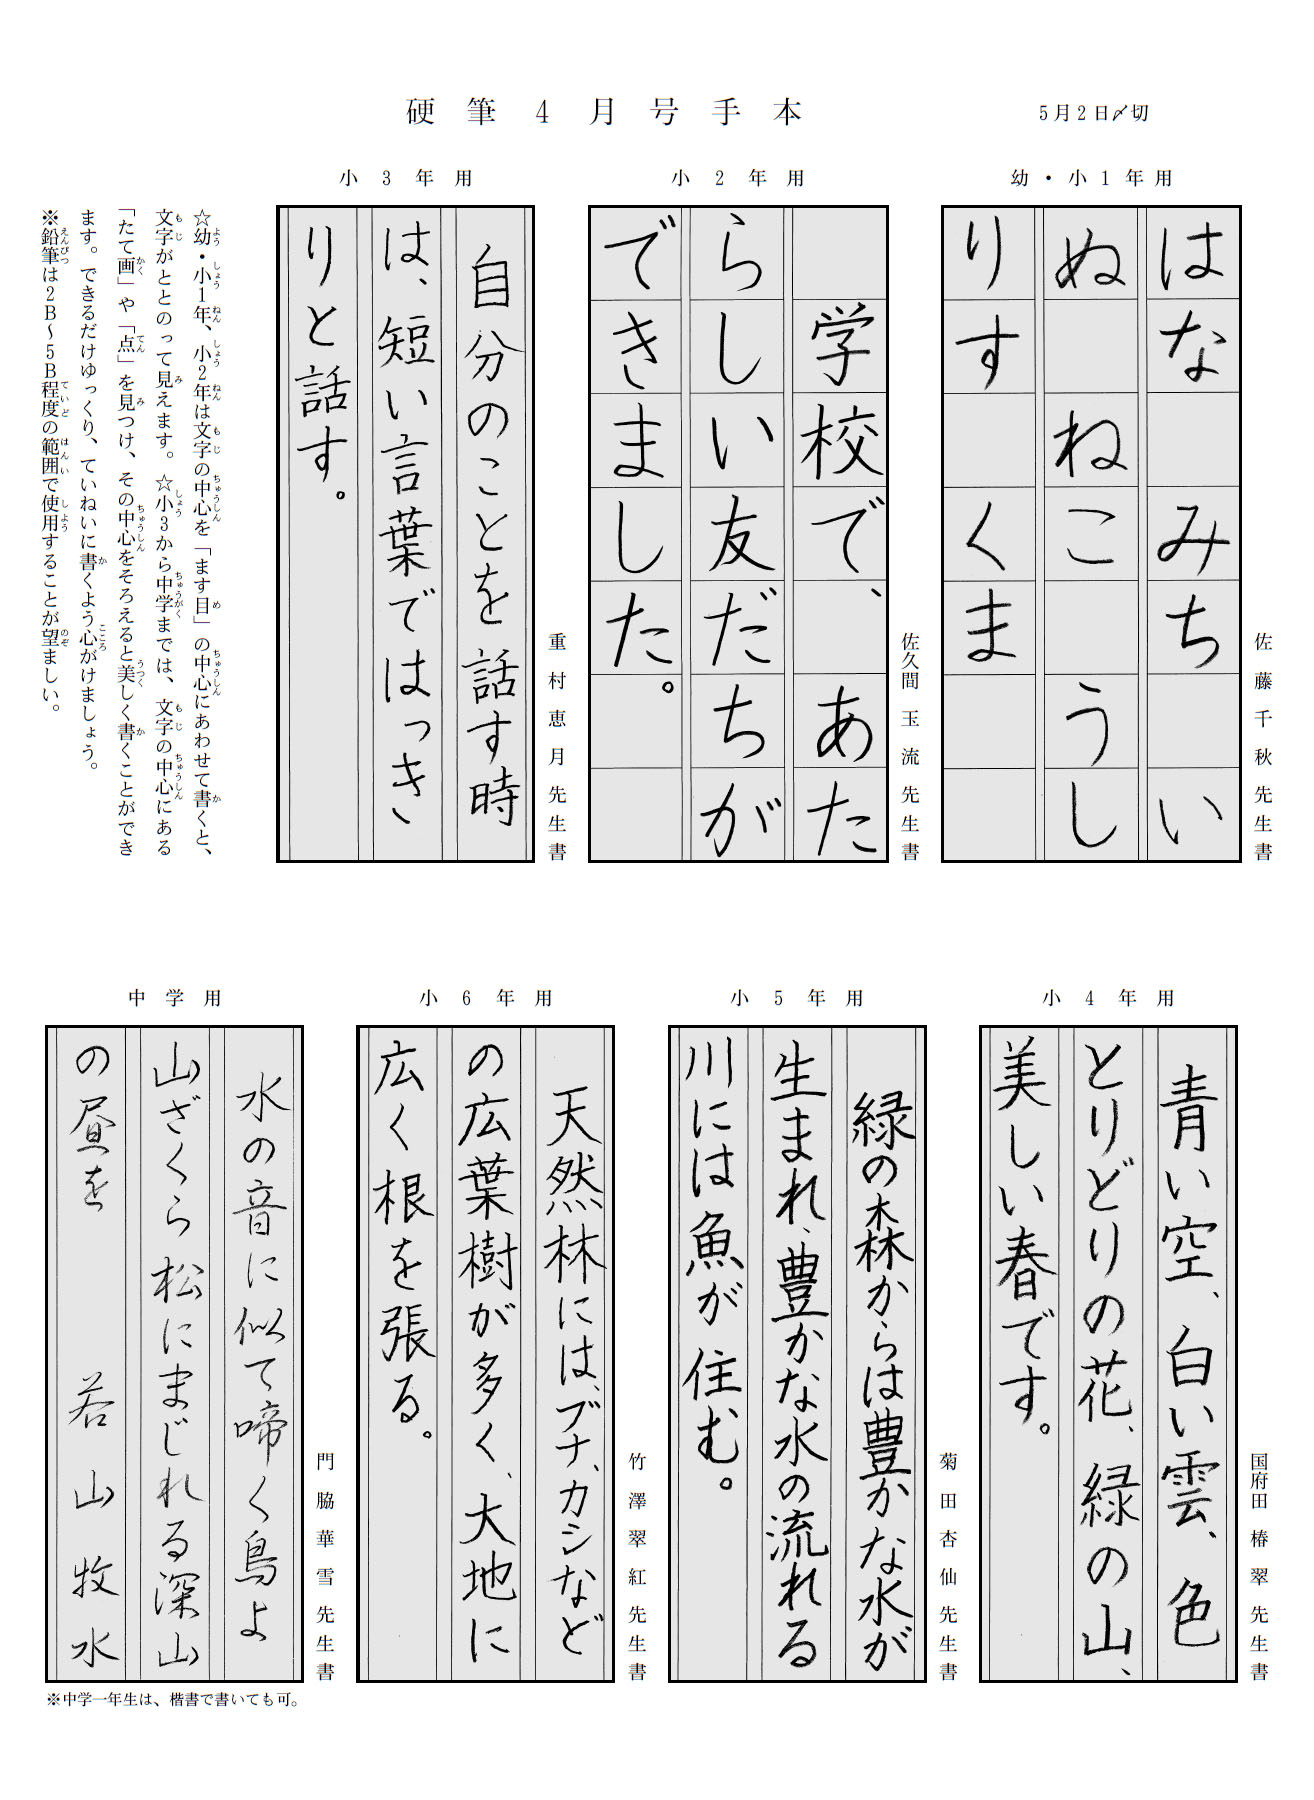 硬筆4月号手本
5月2日〆切
幼・小1年用
はな みち い
ぬ ねこ うし
りす くま
佐藤千秋先生書
小2年用
学校で、あた
らしい友だちが
できました。
佐久間玉流先生書
小3年用
自分のことを話す時
は、短い言葉ではっき
りと話す。
重村恵月先生書
☆幼・小1年、小2年は文字の中心を「ます目」の中心にあわせて書くと、
文字がととのって見えます。☆小3から中学までは、文字の中心にある
「たて画」や「点」を見つけ、その中心をそろえると美しく書くことができ
ます。できるだけゆっくり、ていねいに書くよう心がけましょう。
※鉛筆は2B〜5B程度の範囲で使用することが望ましい。
小4年用
青い空、白い雲、色
とりどりの花、緑の山、
美しい春です。
国府田椿翠先生書
小5年用
緑の森からは豊かな水が
生まれ、豊かな水の流れる
川には魚が住む。
菊田杏仙先生書
小6年用
天然林には、ブナ、カシなど
の広葉樹が多く、大地に
広く根を張る。
竹澤翠紅先生書
中学用
水の音に似て啼く鳥よ
山ざくら松にまじれる深山
の昼を 若山牧水
門脇華雪先生書
※中学一年生は、楷書で書いても可。